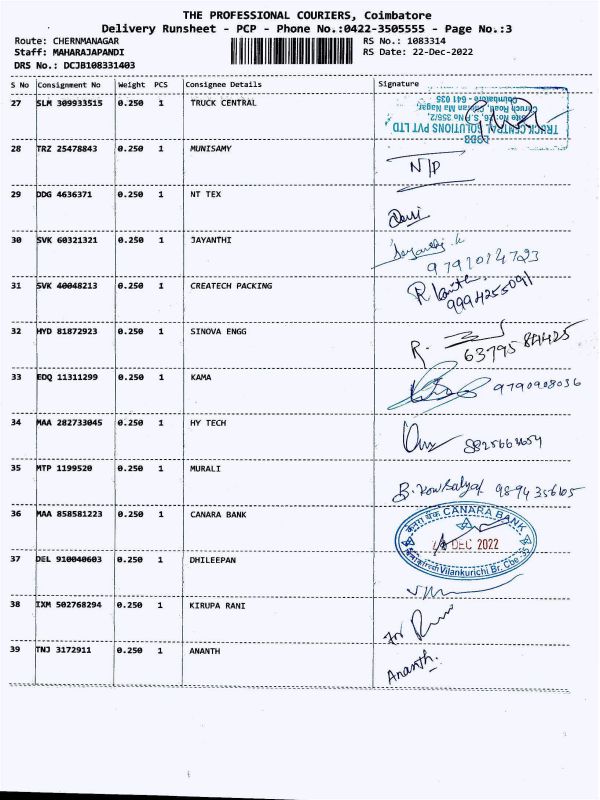 THE PROFESSIONAL COURIERS, Coimbatore
Delivery Runsheet - PCP - Phone No.:0422-3505555 - Page No.:3
Route: CHERNMANAGAR RS No.: 1083314
Staff: MAHARAJAPANDI RS Date: 22-Dec-2022
DRS No.: DCJB108331403
S No Consignment No Weight PCS Consignee Details Signature
27 SLM 309933515 0.250 1 TRUCK CENTRAL
TRUCK CENTRAL SOLUTIONS PVT LTD
Coimbatore - 641 035
28 TRZ 25478843 0.250 1 MUNISAMY N/P
29 DDG 4636371 0.250 1 NT TEX
30 SVK 60321321 0.250 1 JAYANTHI
31 SVK 40048213 0.250 1 CREATECH PACKING
9994255091
32 HYD 81872923 0.250 1 SINOVA ENGG R.
63795 84425
33 EDQ 11311299 0.250 1 KAMA 9790908036
34 MAA 282733045 0.250 1 HY TECH
35 MTP 1199520 0.250 1 MURALI
36 MAA 858581223 0.250 1 CANARA BANK
केनरा बैंक CANARA BANK
DEC 2022
Vilankurichi Br. Cbe -35
37 DEL 910040603 0.250 1 DHILEEPAN
38 IXM 502768294 0.250 1 KIRUPA RANI
39 TNJ 3172911 0.250 1 ANANTH Ananth.